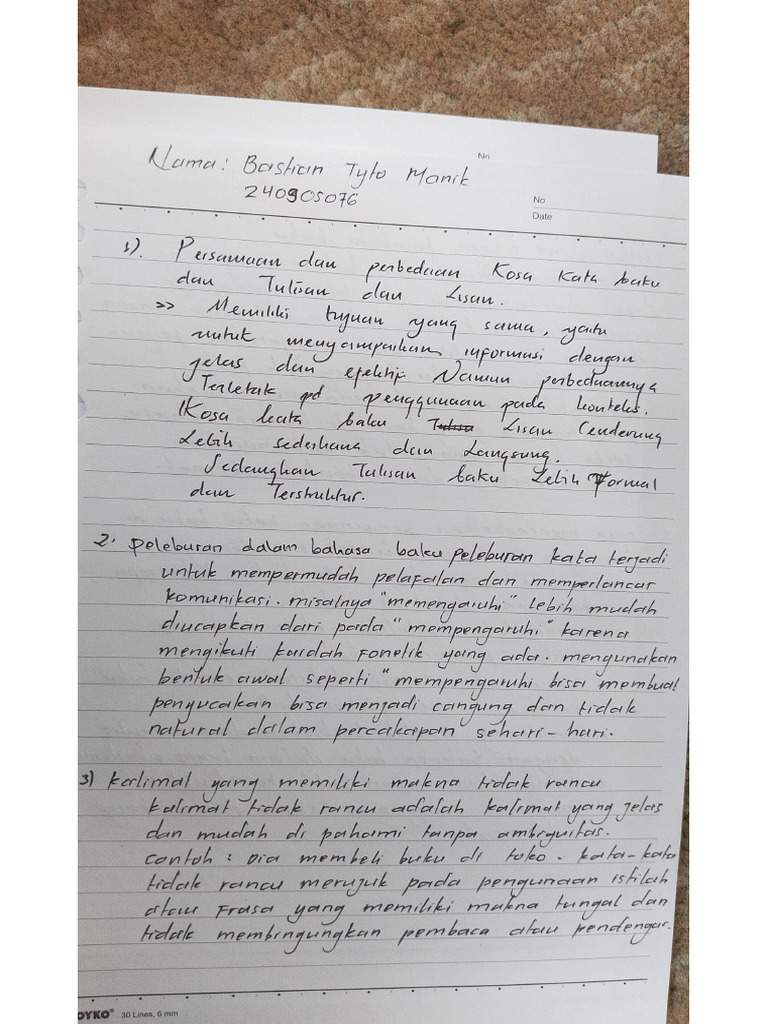 No
Nama: Bastian Tyto Manik
240905076
No
Date
1). Persamaan dan perbedaan Kosa Kata baku
dan Tulisan dan Lisan.
>> Memiliki tujuan yang sama, yaitu
untuk menyampaikan informasi dengan
jelas dan efektif Namun perbedaannya
Terletak pd penggunaan pada konteks.
Kosa kata baku Tulisa Lisan Cenderung
Lebih sederhana dan Langsung.
Sedangkan Tulisan baku Lebih Formal
dan Terstruktur.
2. peleburan dalam bahasa baku peleburan kata terjadi
untuk mempermudah pelafalan dan memperlancar
komunikasi. misalnya "memengaruhi" lebih mudah
diucapkan dari pada "mempengaruhi" karena
mengikuti kaidah fonetik yang ada. mengunakan
bentuk awal seperti "mempengaruhi bisa membuat
pengucakan bisa menjadi cangung dan tidak
natural dalam percakapan sehari-hari.
3) kalimat yang memiliki makna tidak rancu
kalimat tidak rancu adalah kalimat yang jelas
dan mudah di pahami tanpa ambiguitas.
contoh : Dia membeli buku di toko - kata-kata
tidak rancu merujuk pada pengunaan istilah
atau Frasa yang memiliki makna tungal dan
tidak membingungkan pembaca atau pendengar.
OYKO® 30 Lines, 6 mm